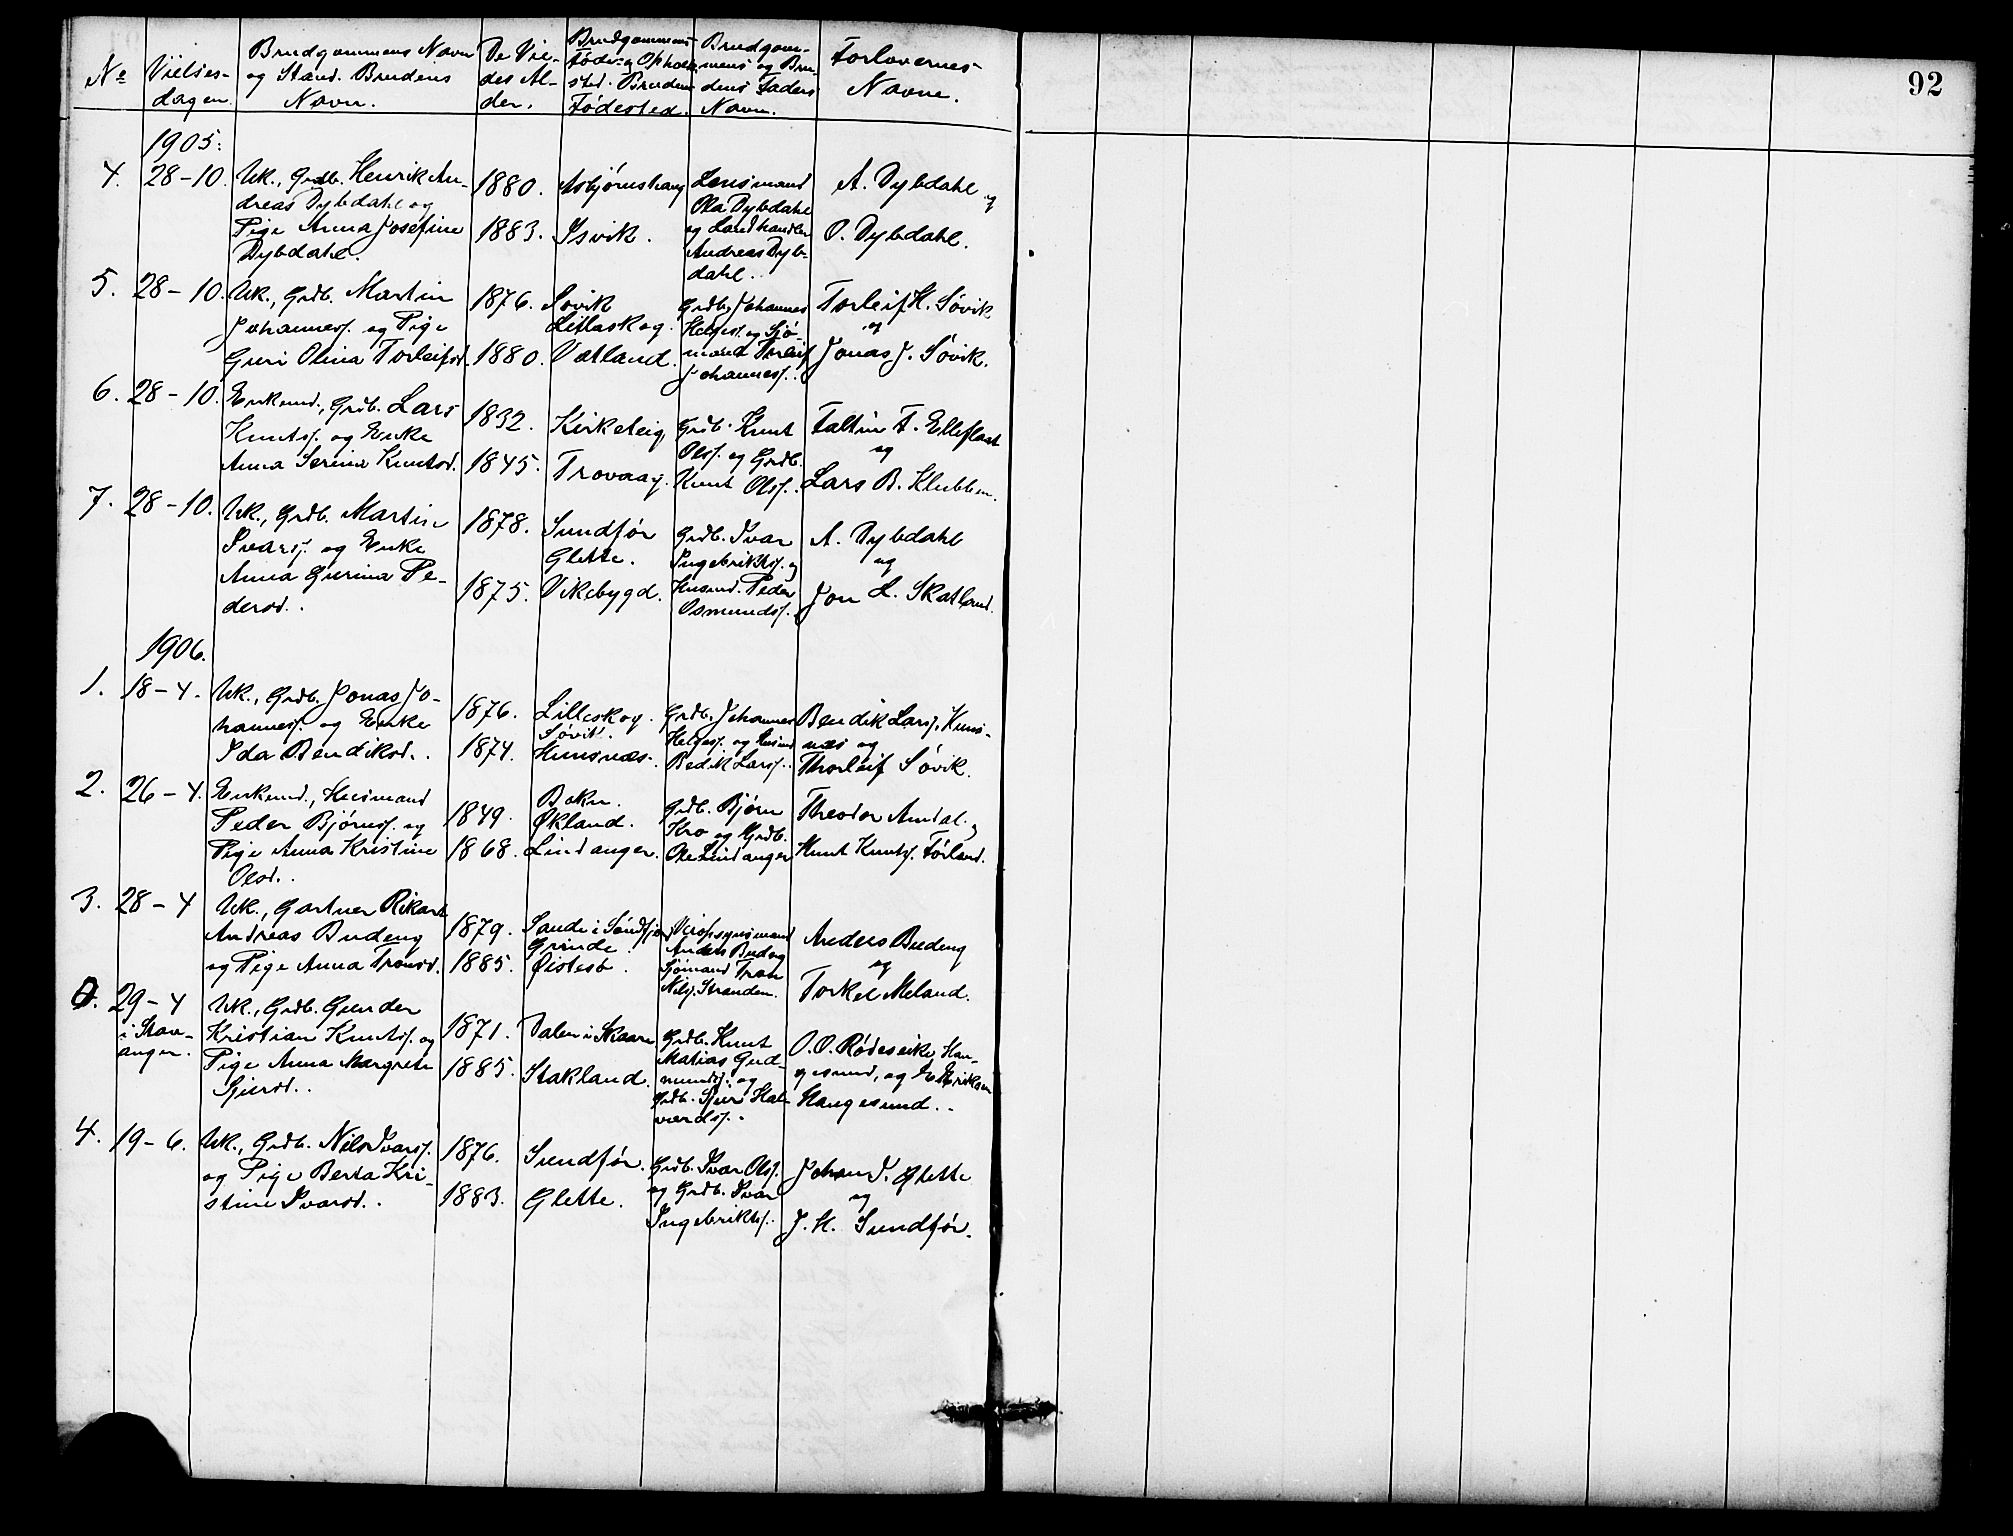 92
№ Vielses- dagen.
Brudgommens Navn og Stand. Brudens Navn.
De Vie- des Al- der.
Brudgommens Føde- og Opholds sted. Brudens Fødested.
Brudgom- mens og Bru- dens Faders Navn.
Forlovernes Navne.
1905:
4. 28-10.
Uk., Grdb. Henrik An-
dreas Dybdahl og
Pige Anna Josefine
Dybdahl.
1880.
1883.
Asbjørnshaug
Isvik.
Lensmand
Ola Dybdahl
og Landhandler
Andreas Dyb-
dahl.
A. Dybdahl og
O. Dybdahl.
5. 28-10.
Uk., Grdb. Martin
Johanness. og Pige
Guri Olina Torleifsd.
1876.
1880.
Søvik
Lillaskog.
Vatland.
Grdb. Johannes
Helges. og Sjø-
mand Torleif
Johanness.
Torleif H. Søvik
og
Jonas J. Søvik.
6. 28-10.
Enkemd., Grdb. Lars
Knuts. og Enke
Anna Serina Knutsd.
1832.
1845.
Kirketeig,
Trovaag.
Grdb. Knut
Ols. og Grdb.
Knut Ols.
Faltin F. Elleflaat
og
Lars B. Klubben.
7. 28-10.
Uk., Grdb. Martin
Ivars. og Enke
Anna Gurina Pe-
dersd.
1878.
1875.
Sundfør
Glette.
Vikebygd.
Grdb. Ivar
Ingebrikts. og
Husmd. Peder
Osmunds.
A. Dybdahl
og
Jon L. Skatland.
1906.
1. 18-4.
Uk., Grdb. Jonas Jo-
hanness. og Enke
Ida Bendiksd.
1876.
1874.
Lilleskog.
Søvik.
Hunsnæs.
Grdb. Johannes
Helges. og Husmd
Bedik Larss.
Bendik Larss. Huns-
næs og
Thorleif Søvik.
2. 26-4.
Enkemd., Husmand
Peder Bjørns. og
Pige Anna Kristine
Olsd.
1849.
1868.
Bokn.
Økland.
Lindanger.
Grdb. Bjørn
Kro og Grdb.
Ole Lindanger
Theodor Amdal. og
Knut Knuts. Førland.
3. 28-4
Uk., Gartner Rikard
Andreas Budeng
og Pige Anna Tronsd.
1879.
1885.
Sande i Søndfjord
Grinde.
Øistesø.
Veiopsynsmand
Anders Budeng
Sjømand Tron
Nils. Stranden.
Anders Budeng
og
Torkel Meland.
0. 29-4
i Stav-
anger.
Uk., Grdb. Gunder
Kristian Knuts. og
Pige Anna Margrete
Sjursd.
1871.
1885.
Dalen i Skaare
Stakland.
Grdb. Knut
Matias Gud-
munds. og
Grdb. Sjur Hal-
vards.
O. O. Rødeseike, Hau-
gesund, og E. Eriksen
Haugesund.
4. 19-6.
Uk., Grdb. Nils Ivars.
og Pige Berta Kri-
stine Ivarsd.
1876.
1883.
Sundfør.
Glette.
Grdb. Ivar Ols.
og Grdb. Ivar
Ingebrikts.
Johan I. Glette
og
J. H. Sundfør.